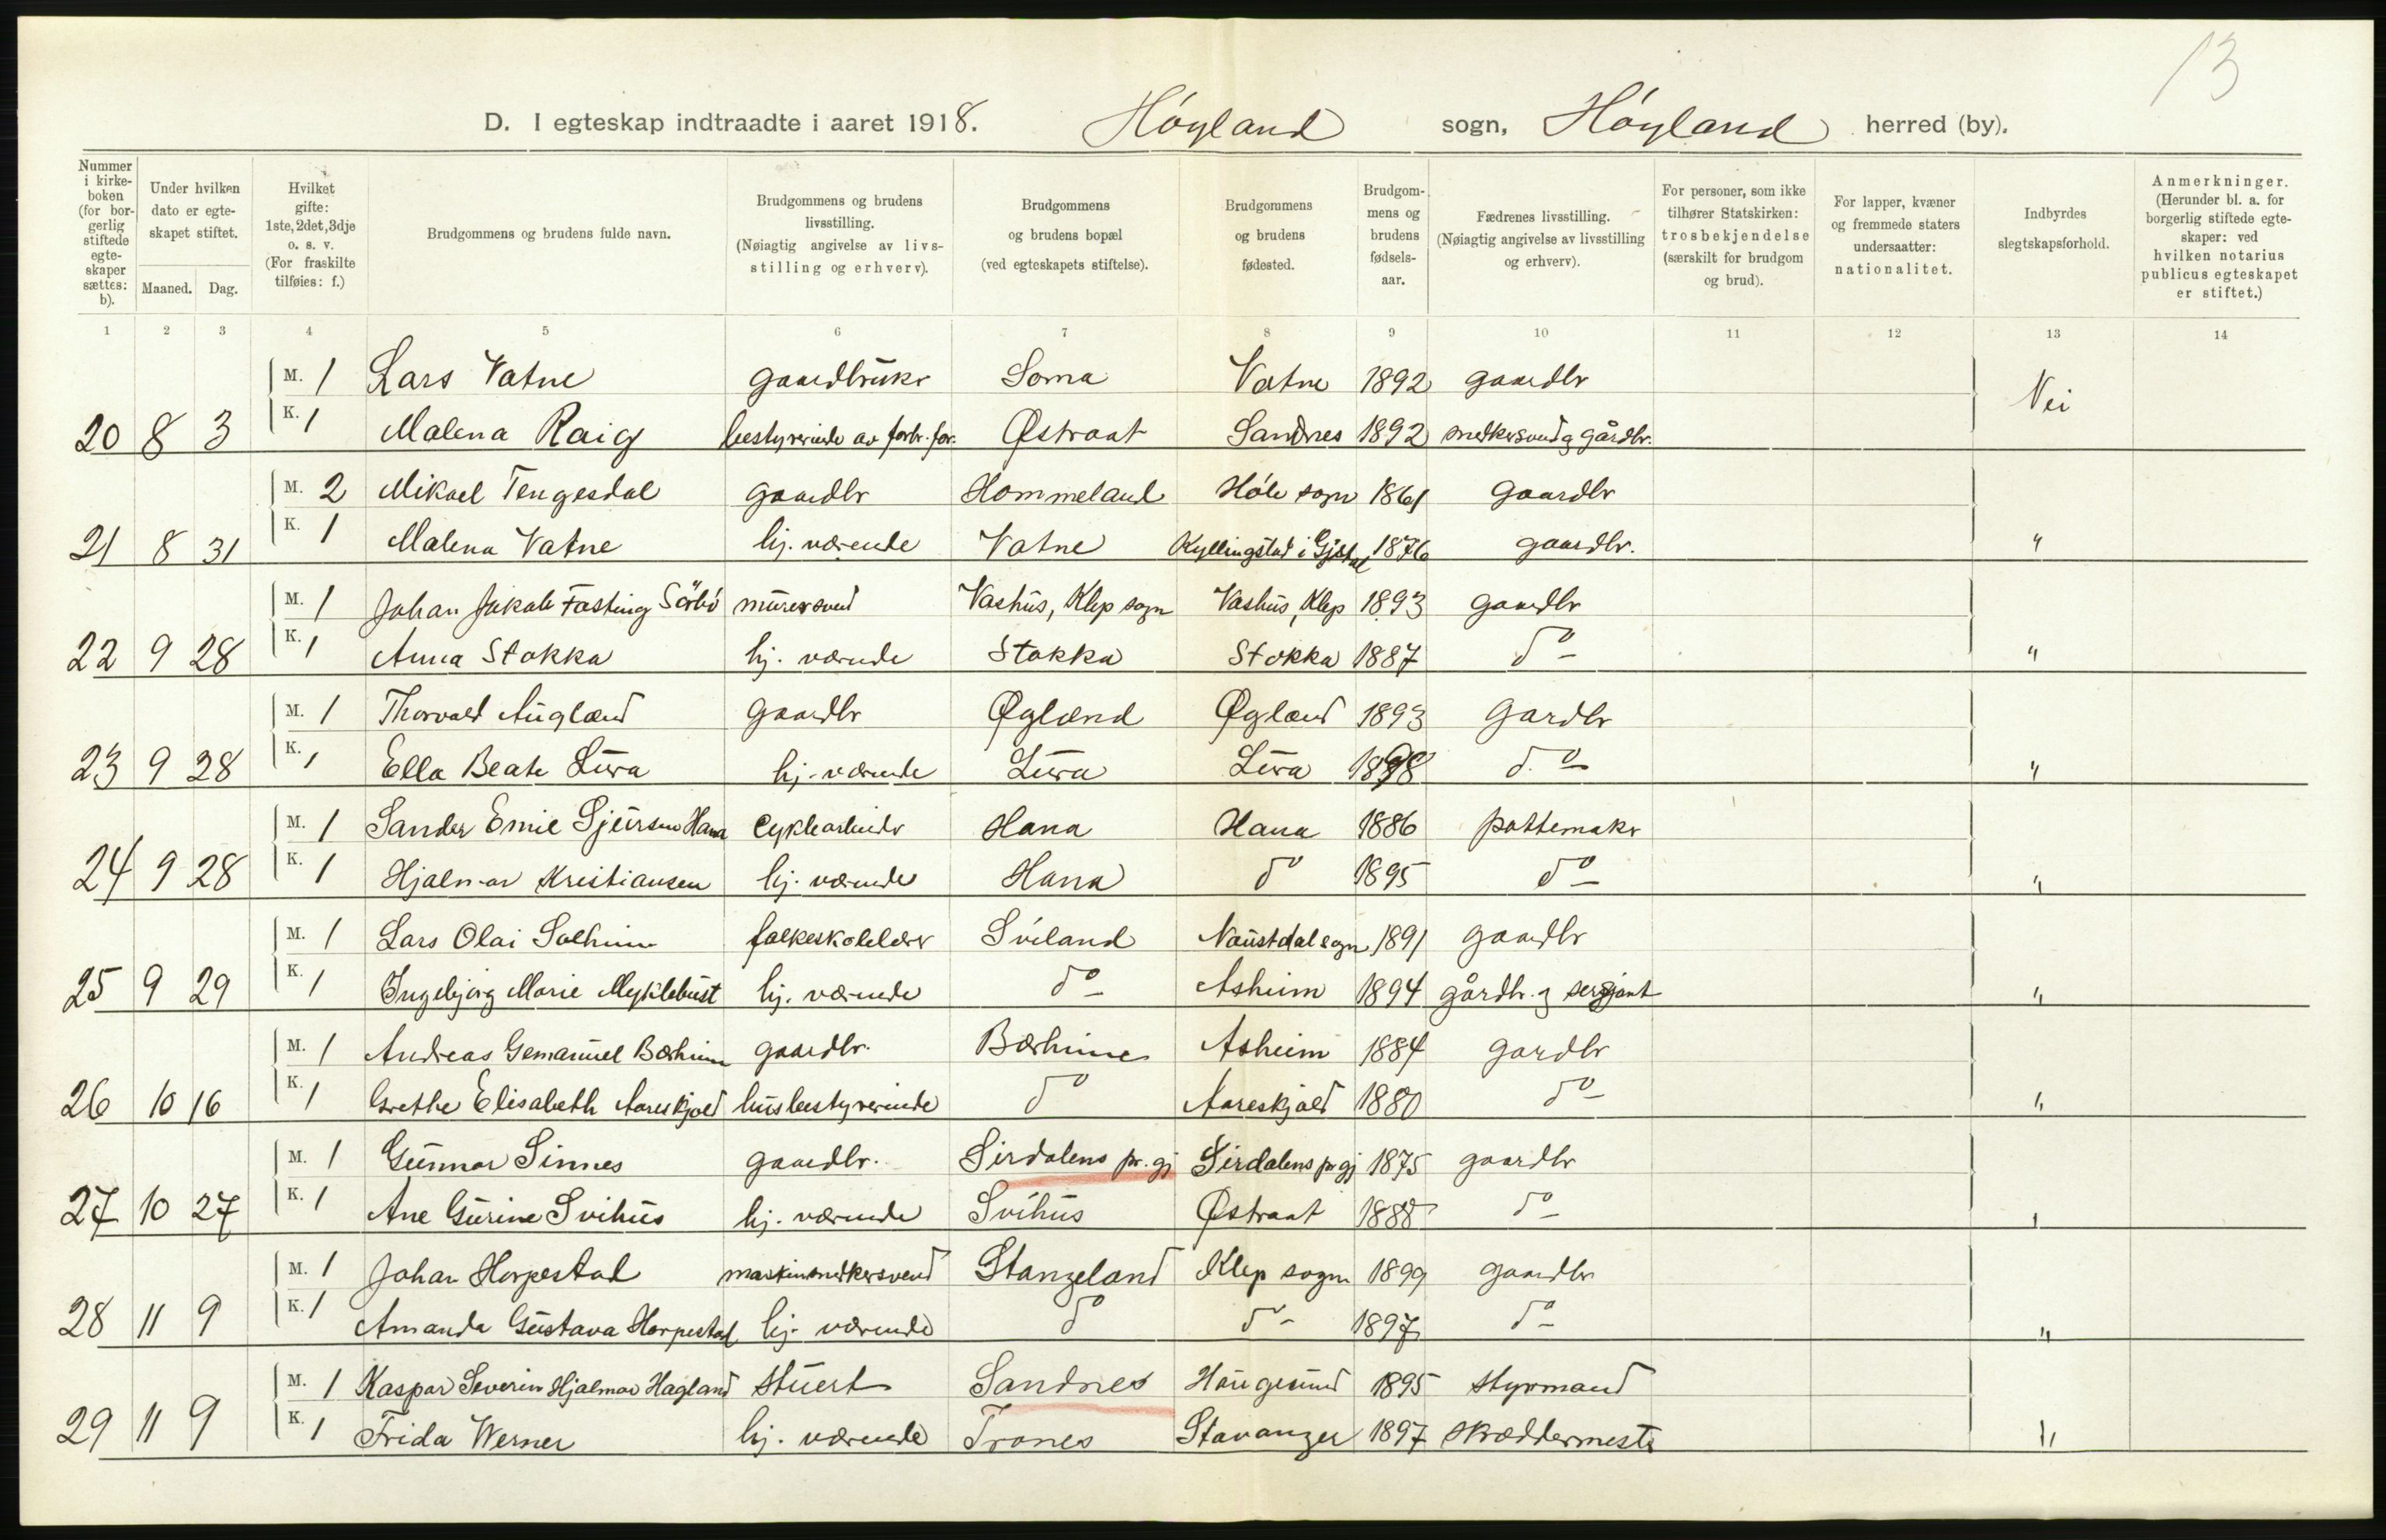 13
D. I egteskap indtraadte i aaret 1918. Høyland sogn, Høyland herred (by).
Nummer i kirke-boken (for bor-gerlig stiftede egte-skaper sættes: b).
Under hvilken dato er egte-skapet stiftet. Maaned. Dag.
Hvilket gifte: 1ste, 2det, 3dje o. s. v. (For fraskilte tilføies: f.)
Brudgommens og brudens fulde navn.
Brudgommens og brudens livsstilling. (Nøiagtig angivelse av livs-stilling og erhverv).
Brudgommens og brudens bopæl (ved egteskapets stiftelse).
Brudgommens og brudens fødested.
Brudgom-mens og brudens fødsels-aar.
Fædrenes livsstilling. (Nøiagtig angivelse av livsstilling og erhverv).
For personer, som ikke tilhører Statskirken: trosbekjendelse (særskilt for brudgom og brud).
For lapper, kvæner og fremmede staters undersaatter: nationalitet.
Indbyrdes slegtskapsforhold.
Anmerkninger. (Herunder bl. a. for borgerlig stiftede egte-skaper: ved hvilken notarius publicus egteskapet er stiftet.)
1 2 3 4 5 6 7 8 9 10 11 12 13 14
M. 1 Lars Vatne gaardbruker Soma Vatne 1892 gaardbr Nei
20 8 3 K. 1 Malena Raig bestyrerinde av forbr. for. Østraat Sandnes 1892 snedkersvend og gårdbr.
M. 2 Mikael Tengesdal gaardbr Hommeland Høle sogn 1861 gaardbr
21 8 31 K. 1 Malena Vatne hj. værende Vatne Kyllingstad i Gjestal 1876 gaardbr. "
M. 1 Johan Jakob Fasting Sörbö murersvend Vashus, Klep sogn Vashus, Klep 1893 gaardbr
22 9 28 K. 1 Anna Stokka hj. værende Stokka Stokka 1887 do "
M. 1 Thorvald Augland gaardbr Øgland Øgland 1893 gardbr
23 9 28 K. 1 Ella Beate Lura hj. værende Lura Lura 1898 do "
M. 1 Sander Emil Sjursen Hana cyklearbeider Hana Hana 1886 pottemaker
24 9 28 K. 1 Hjalmar Kristiansen hj. værende Hana do 1895 do "
M. 1 Lars Olai Solheim folkeskolelærer Sviland Naustdal sogn 1891 gaardbr
25 9 29 K. 1 Ingebjørg Marie Myklebust hj. værende do Asheim 1894 gårdbr. og sersjant "
M. 1 Andreas Gemanuel Bærheim gaardbr. Bærheim Asheim 1884 gardbr
26 10 16 K. 1 Grethe Elisabeth Aareskjold husbestyrerinde do Aareskjold 1880 do "
M. 1 Gunnar Sinnes gaardbr. Sirdalens pr.gj Sirdalens prgj 1875 gaardbr
27 10 27 K. 1 Ane Gurine Svihus hj. værende Svihus Østraat 1888 do "
M. 1 Johan Horpestad maskinsnedkersvend Stangeland Klep sogn 1899 gaardbr
28 11 9 K. 1 Amanda Gustava Horpestad hj. værende do do 1897 do "
M. 1 Kaspar Severin Hjalmar Hagland stuert Sandnes Haugesund 1895 styrmand
29 11 9 K. 1 Frida Werner hj. værende Trones Stavanger 1897 skræddermester "